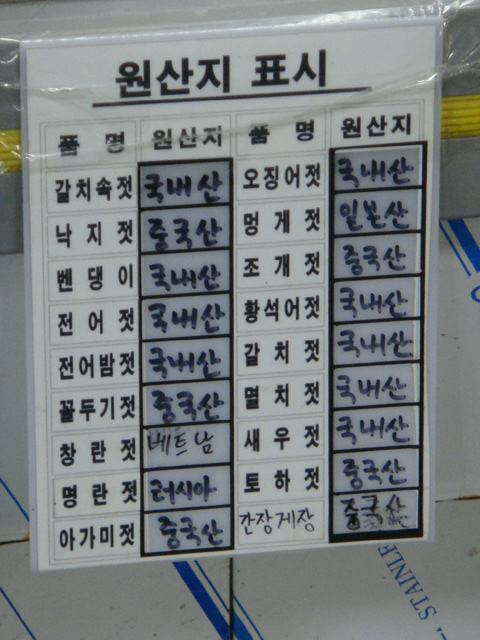 원산지 표시
품 명 원산지 품 명 원산지
갈치속젓 국내산 오징어젓 국내산
낙 지 젓 중국산 멍 게 젓 일본산
벤 댕 이 국내산 조 개 젓 중국산
전 어 젓 국내산 황석어젓 국내산
전어밤젓 국내산 갈 치 젓 국내산
꼴두기젓 중국산 멸 치 젓 국내산
창 란 젓 베트남 새 우 젓 국내산
명 란 젓 러시아 토 하 젓 중국산
아가미젓 중국산 간장게장 중국산
STAINLE